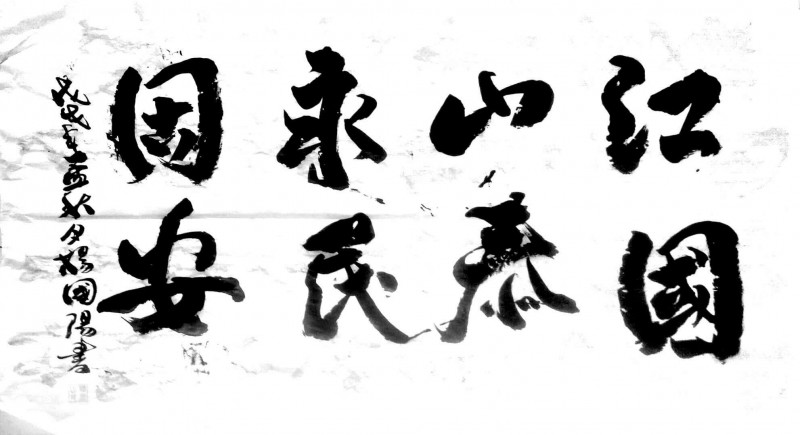 江山永固
國泰民安
戊戌年孟秋月楊國陽書